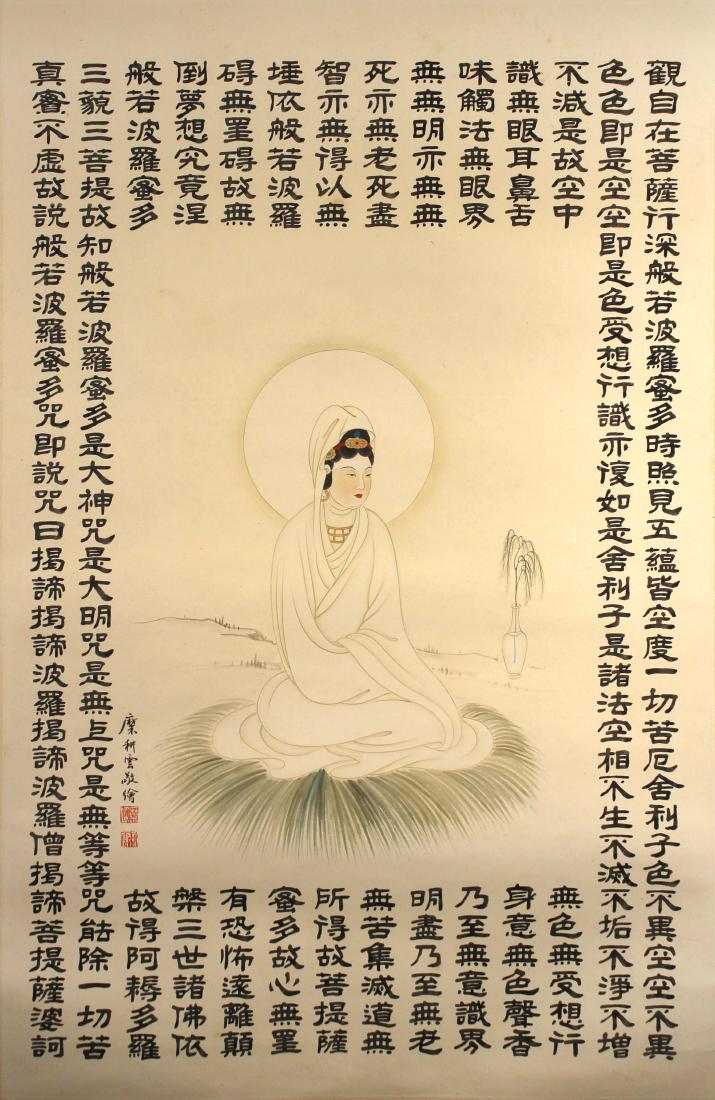 觀自在菩薩行深般若波羅蜜多時照見五蘊皆空度一切苦厄舍利子色不異空空不異
色色即是空空即是色受想行識亦復如是舍利子是諸法空相不生不滅不垢不淨不增
不減是故空中
無色無受想行
識無眼耳鼻舌
身意無色聲香
味觸法無眼界
乃至無意識界
無無明亦無無
明盡乃至無老
死亦無老死盡
無苦集滅道無
智亦無得以無
所得故菩提薩
埵依般若波羅
蜜多故心無罣
碍無罣碍故無
有恐怖遠離顛
倒夢想究竟涅
槃三世諸佛依
般若波羅蜜多
故得阿耨多羅
三藐三菩提故知般若波羅蜜多是大神咒是大明咒是無上咒是無等等咒能除一切苦
真實不虛故說般若波羅蜜多咒即說咒曰揭諦揭諦波羅揭諦波羅僧揭諦菩提薩婆訶
糜耕雲敬繪